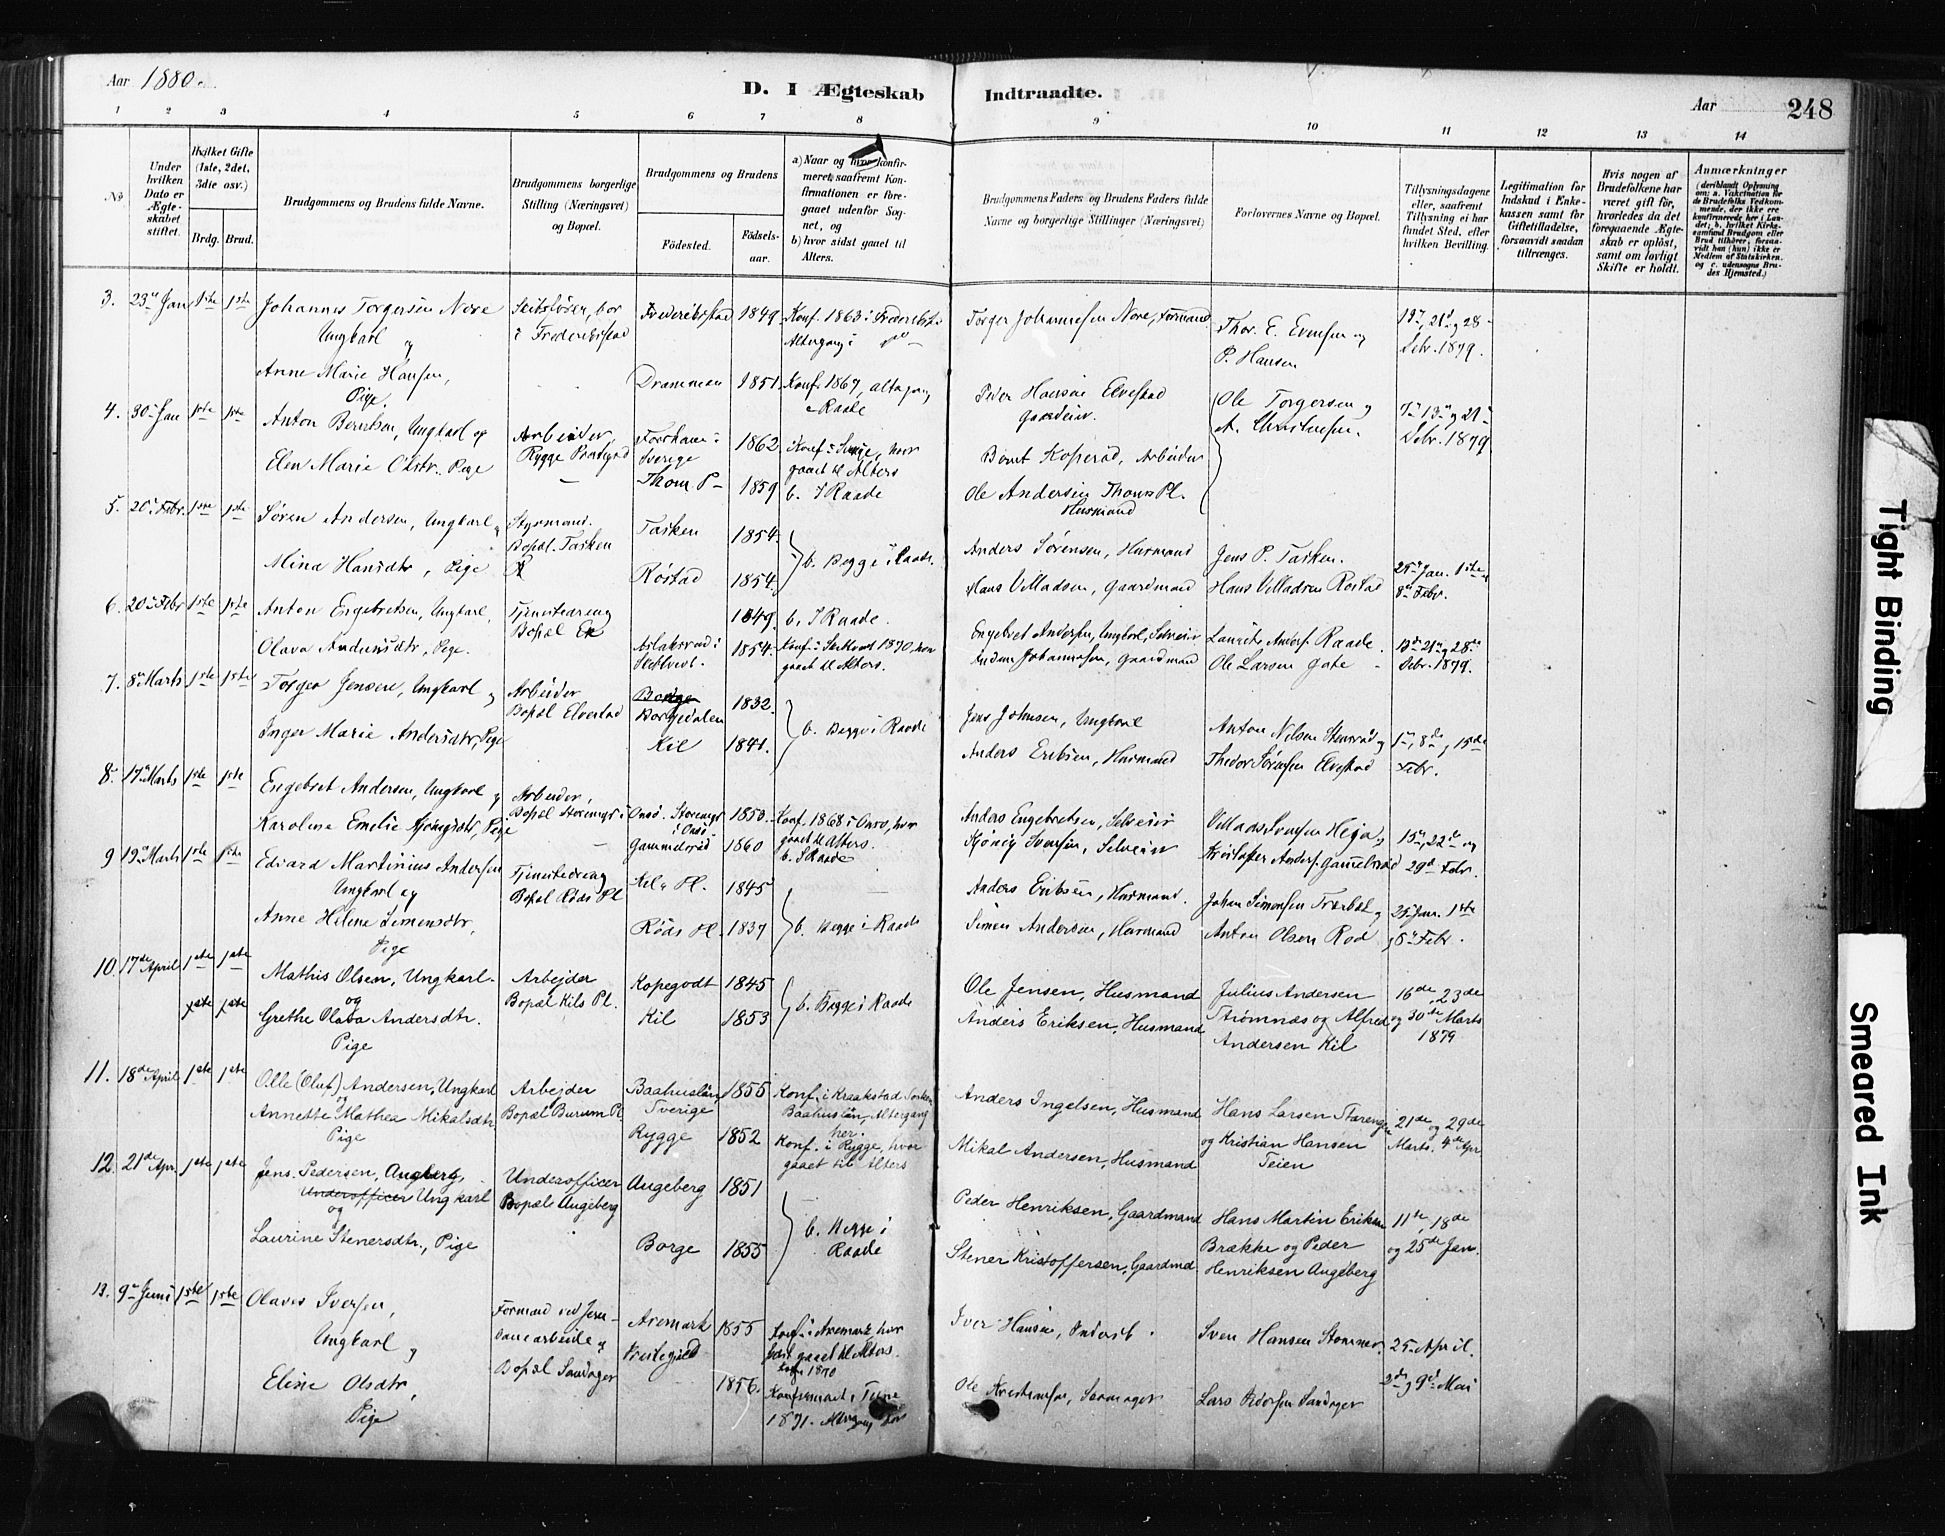 Aar 1880.
D. I Ægteskab Indtraadte.
Aar 248
1 2 3 4 5 6 7 8 9 10 11 12 13 14
No.
Under hvilken Dato er Ægteskabet stiftet.
Hvilket Gifte (1ste, 2det, 3die osv.)
Brdg. Brud.
Brudgommens og Brudens fulde Navne.
Brudgommens borgerlige Stilling (Næringsvei) og Bopæl.
Brudgommens og Brudens
Födested. Födsels-aar.
a) Naar og hvor konfirmeret, saafremt Konfirmationen er foregaaet udenfor Sognet, og
b) hvor sidst gaaet til Alters.
Brudgommens Faders og Brudens Faders fulde Navne og borgerlige Stillinger (Næringsvei)
Forlovernes Navne og Bopæl.
Tillysningsdagene eller, saafremt Tillysning ei har fundet Sted, efter hvilken Bevilling.
Legitimation for Indskud i Enkekassen samt for Giftetilladelse, forsaavidt saadan tiltrænges.
Hvis nogen af Brudefolkene har været gift før, hvorledes da det foregaaende Ægteskab er oplöst, samt om lovligt Skifte er holdt.
Anmærkninger
(deriblandt Oplysning om: a. Vakcination for de Brudefolks Vedkommende, der ikke ere konfirmerede her i Landet; b. hvilket Kirkesamfund Brudgom eller Brud tilhörer, forsaavidt han (hun) ikke er Medlem af Statskirken, og c. udensogns Brudes Hjemsted.)
3. 23 Jan 1ste 1ste Johannes Torgersen Nore bor Frederikstad 1849. Konf. 1863 i Frederikst.
Torger Johannesen Nore, Formand Thor. E. Evensen og 21 28
Ungkarl og i Frederikstad Altergang i
P. Hansen Debr. 1879.
Anne Marie Hansen, Drammen 1851. Konf. 1867, altergang
Pige. i Raade
Peder Hansen Elvestad
Gaardeier.
4. 30 Jan 1ste 1ste Anton Berntsen, Ungkarl og Arbeider 1862. hvor
Rygge Sverige gaaet til Alters
Ole Torgersen og 7 13 og 21
A. Christensen. Debr. 1879
Elen Marie Olsdtr. Pige Thom Pl 1859 b. I Raade
Bernt Koperød, Arbeider
Ole Andersen Thom Pl.
Husmand
5. 20 Febr. 1ste 1ste Søren Andersen, Ungkarl Styrmand. Tasken 1854.
Bopæl. Tasken b. Begge i Raade.
Mina Hansdtr, Pige Røstad 1854.
Anders Sørensen, Husmand Jens P. Tasken.
25 Jan. 1ste
Hans Villadsen, Gaardmand Hans Villadsen Røstad 8 Febr.
6. 20 Febr 1ste 1ste Anton Engebretsen, Ungkarl, Tjenestedreng 1849. b. I Raade.
Bopæl
Olava Andersdtr, Pige. i 1854. Konf. i 1870, hvor
gaaet til Alters.
Engebret Andersen, Ungkarl, Selveier Laurits Anders. Raade. 21 og 28
Johannesen, Gaardmand Ole Larsen Debr. 1879.
7. 8 Marts 1ste 1ste Torger Jensen, Ungkarl og Arbeider Borge 1832.
Bopæl Elvestad Borgedalen
Inger Marie Andersdtr, Pige Kil 1841. b. Begge i Raade
Jens Johnsen, Ungkarl Anton Nilsen og 1, 8de, 15de
Anders Eriksen, Husmand Thedor Sørensen Elvestad Febr.
8. 17 Marts 1ste 1ste Engebret Andersen, Ungkarl og Arbeider, Onsø. 1850. Konf. 1868 i Onsø, hvor
Bopæl Storemyr i i Onsø gaaet til Alters.
Karoline Emelie Pige Gammelrød 1860 b. I Raade
Anders Engebretsen, Selveier Villads Svensen Heja, 15, 22de og
Svensen, Selveier Kristoffer Anders. Gamelrød 29de Febr.
9 19 Marts 1ste 1ste Edvard Martinius Andersen Tjenestedreng Kils Pl. 1845
Ungkarl og Bopæl Røds Pl
Anne Helene Simensdtr, Røds Pl. 1837 b. Begge i Raade
Pige
Anders Eriksen, Husmand. Johan Simensen og 25 Jan. 1ste
Simen Andersen, Husmand Anton Olsen Rød 8 Febr.
10. 17de April 1ste 1ste Mathis Olsen, Ungkarl. Arbejder Kopegodt 1845
og Bopæl Kils Pl. b. Begge i Raade
1ste 1ste Grethe Olava Andersdtr. Kil 1853
Pige
Ole Jensen, Husmand Julius Andersen 16de, 23de
Anders Eriksen, Husmand Strømnæs og Alfred og 30de Marts
Andersen Kil 1879
11. 18de April 1ste 1ste Olle (Oluf) Andersen, Ungkarl Arbejder Baahuslän 1855 Konf. i Kraakstad Sogn
og Bopæl Burum Pl. Sverige Baahuslän, Altergang
Annette Mathea Mikalsdtr. her.
Pige Rygge 1852 Konf. i Rygge, hvor
gaaet til Alters
Anders Ingelsen, Husmand Hans Larsen Starengen 21de og 29de
Mikal Andersen, Husmand og Kristian Hansen Marts. 4de Apr
Teien
12. 21de Apr. 1ste 1ste Jens Pedersen, Augeberg, Underofficer Augeberg 1851
Underofficer Ungkarl Bopæl Augeberg
og b. Begge i
Laurine Stenersdtr., Pige Borge 1855 Raade
Peder Henriksen, Gaardmand Hans Martin Eriksen 11te, 18de
Brække og Peder og 25de Jan.
Stener Kristoffersen, Gaardmd Henriksen Augeberg
13. 9 Juni 1ste 1ste Olaves Iversen, Formand ved Jern- Aremark 1855 Konf. i Aremark, hvor
Ungkarl og banearbeide og Prestegjeld sidst gaaet til Alters.
Bopæl Sandager 1870
Eline Olsdtr, 1856. Konfirmeret i Tune
Pige 1871. Altergang her
Iver Hansen, Inderst. Sven Hansen Stommen. 25 April.
Ole Kristensen, Lars Pedersen Sandager 2de og 9de Mai
Tight Binding
Smeared Ink